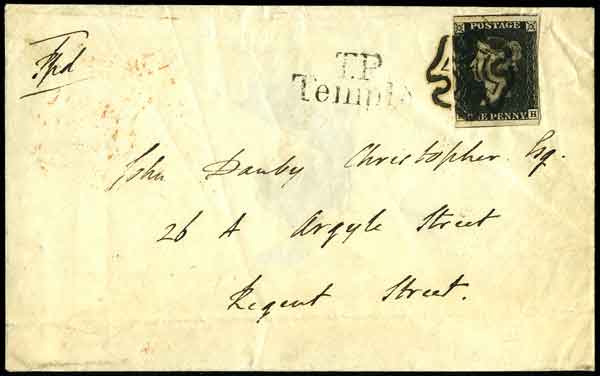 Ppd
T.P
Temple
POSTAGE
ONE PENNY
H
John Danby Christopher Esq.
26 A Argyle Street
Regent Street.